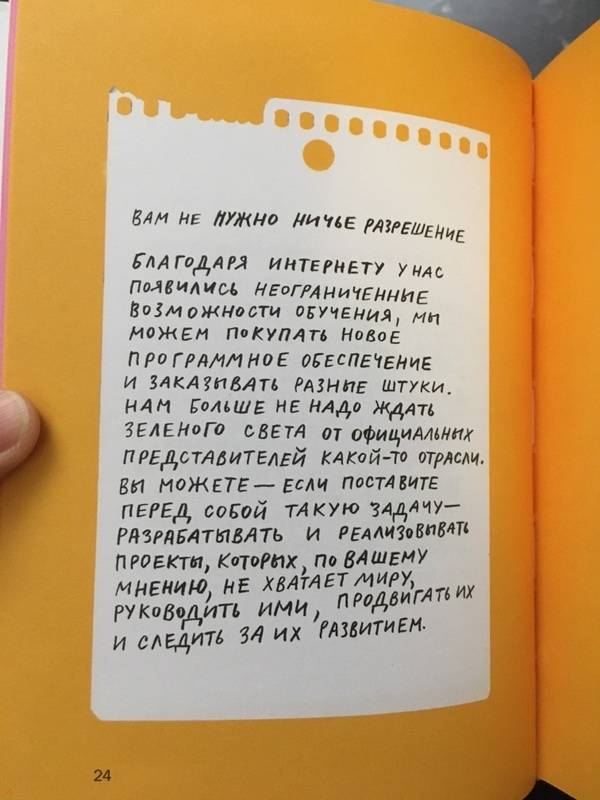 ВАМ НЕ НУЖНО НИЧЬЕ РАЗРЕШЕНИЕ
БЛАГОДАРЯ ИНТЕРНЕТУ У НАС
ПОЯВИЛИСЬ НЕОГРАНИЧЕННЫЕ
ВОЗМОЖНОСТИ ОБУЧЕНИЯ, МЫ
МОЖЕМ ПОКУПАТЬ НОВОЕ
ПРОГРАММНОЕ ОБЕСПЕЧЕНИЕ
И ЗАКАЗЫВАТЬ РАЗНЫЕ ШТУКИ.
НАМ БОЛЬШЕ НЕ НАДО ЖДАТЬ
ЗЕЛЕНОГО СВЕТА ОТ ОФИЦИАЛЬНЫХ
ПРЕДСТАВИТЕЛЕЙ КАКОЙ-ТО ОТРАСЛИ.
ВЫ МОЖЕТЕ — ЕСЛИ ПОСТАВИТЕ
ПЕРЕД СОБОЙ ТАКУЮ ЗАДАЧУ —
РАЗРАБАТЫВАТЬ И РЕАЛИЗОВЫВАТЬ
ПРОЕКТЫ, КОТОРЫХ, ПО ВАШЕМУ
МНЕНИЮ, НЕ ХВАТАЕТ МИРУ,
РУКОВОДИТЬ ИМИ, ПРОДВИГАТЬ ИХ
И СЛЕДИТЬ ЗА ИХ РАЗВИТИЕМ.
24